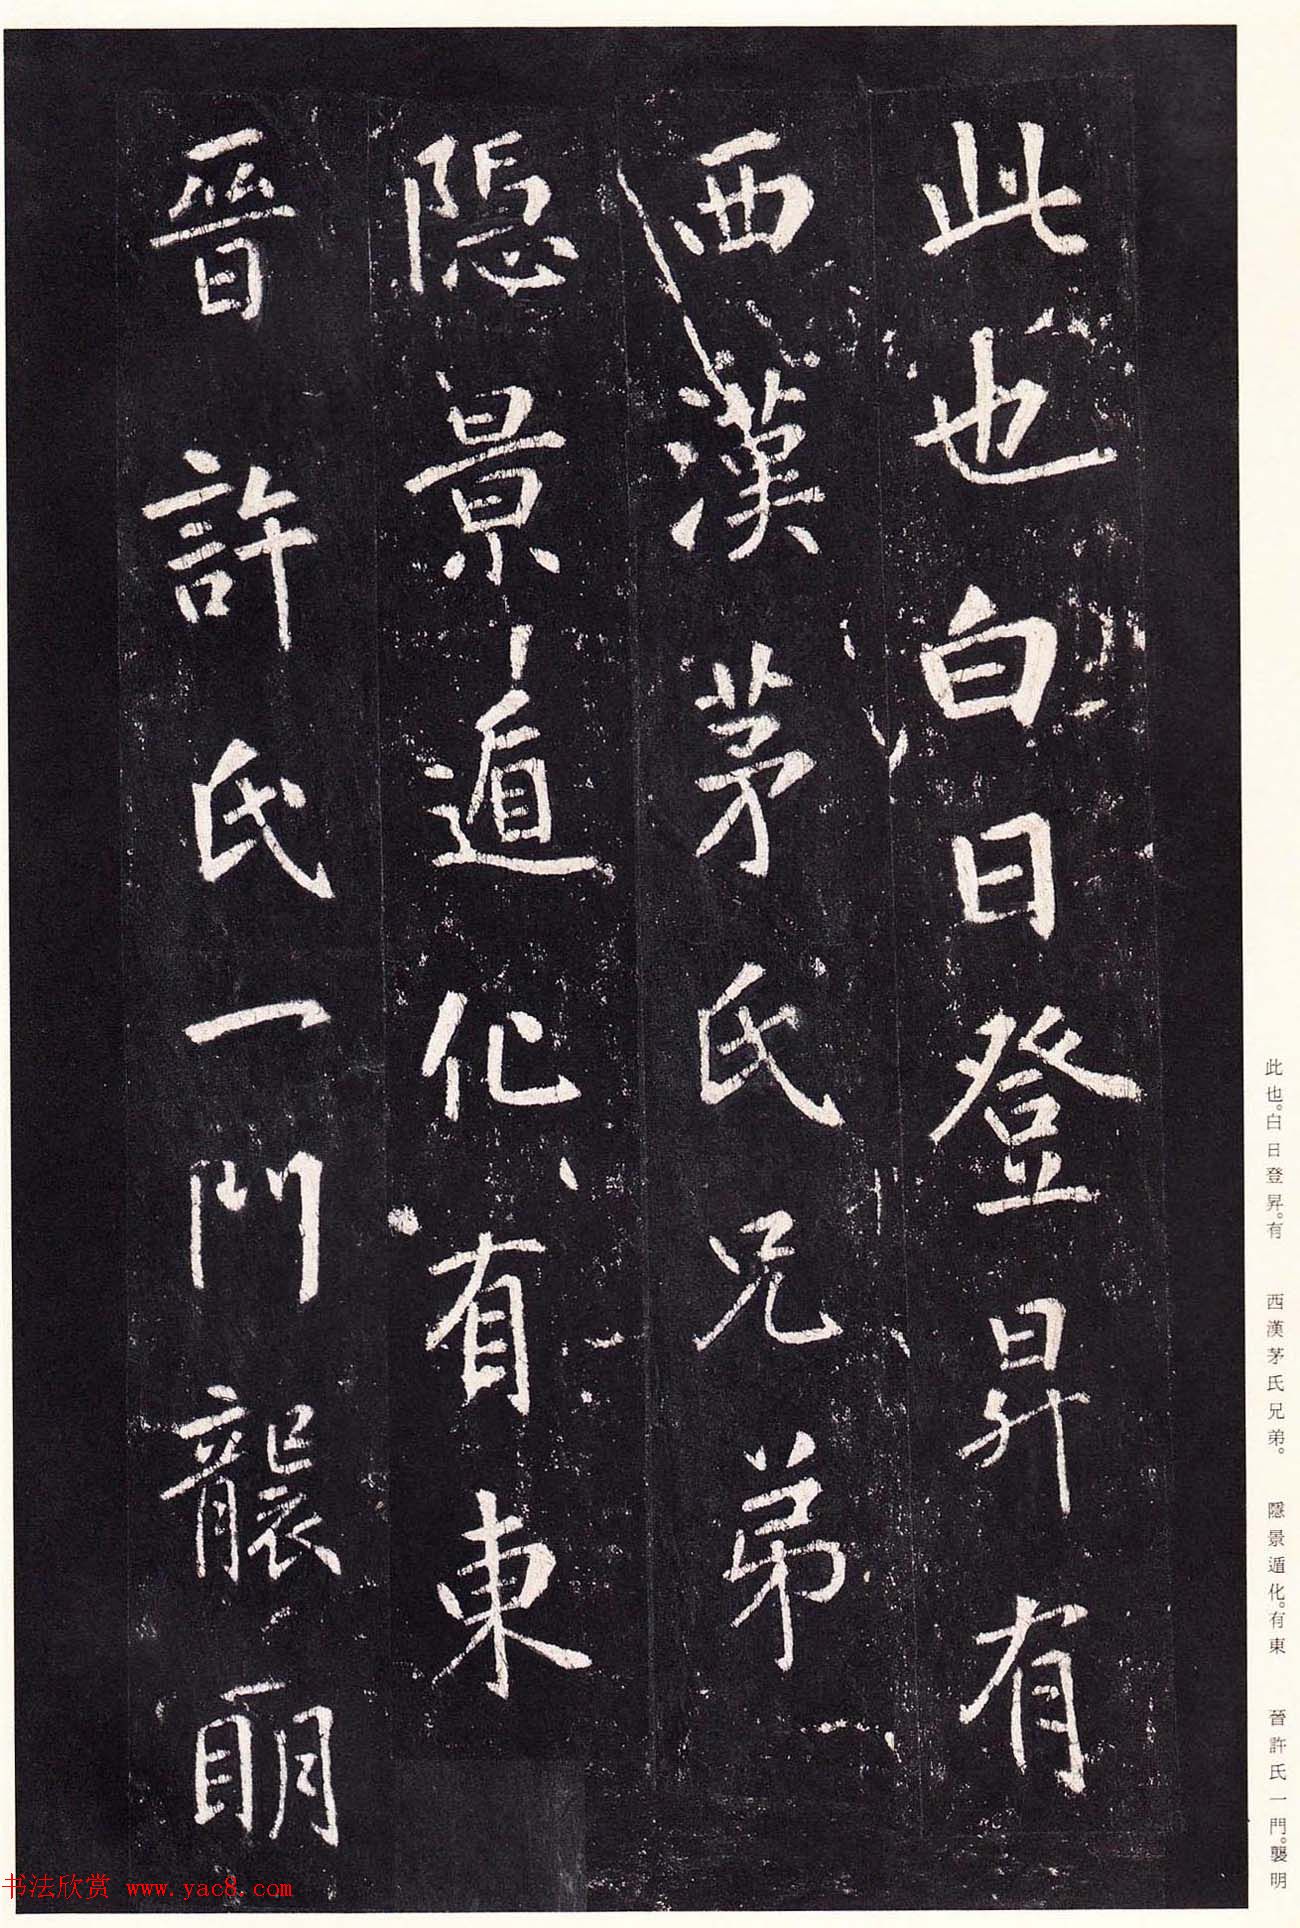 此也白日登昇有
西漢茅氏兄弟
隱景遁化有東
晉許氏一門襲明
此也。白日登昇。有 西漢茅氏兄弟。 隱景遁化。有東 晉許氏一門。襲明
书法欣赏 www.yac8.com